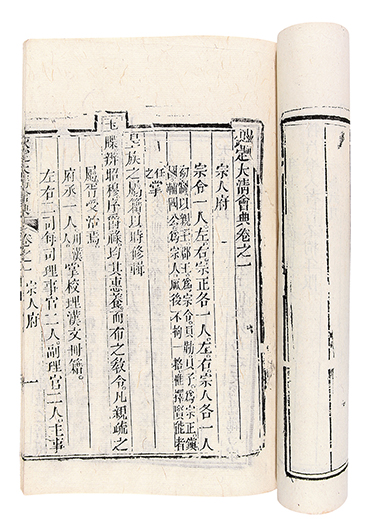 欽定大清會典卷之一
宗人府
宗令一人左右宗正各一人左右宗人各一人
初制以親王郡王爲宗令貝勒貝子爲宗正鎮
國輔國公爲宗人厥後不拘一格惟擇賢能者
任之掌
皇族之屬籍以時修輯
玉牒辨昭穆序爵祿均其惠養而布之敎令凡親疏之
屬胥受治焉
府丞一人用漢掌校理漢文冊籍
左右二司每司理事官二人副理官二人主事
欽定大清會典 卷之一 宗人府 一